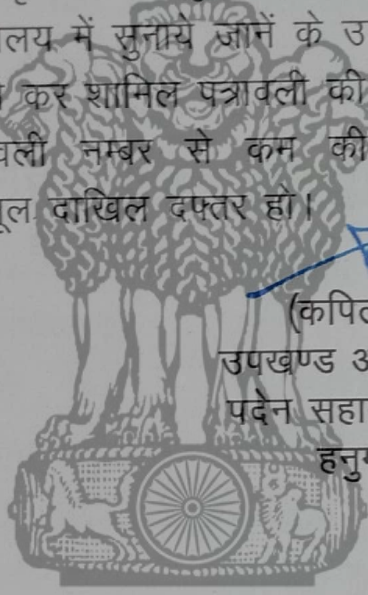 लय में सुनाये जानें के उ
कर शामिल पत्रावली की
वली नम्बर से कम की
ूल दाखिल दफ्तर हो।
(कपिल
उपखण्ड अ
पदेन सहा
हनु